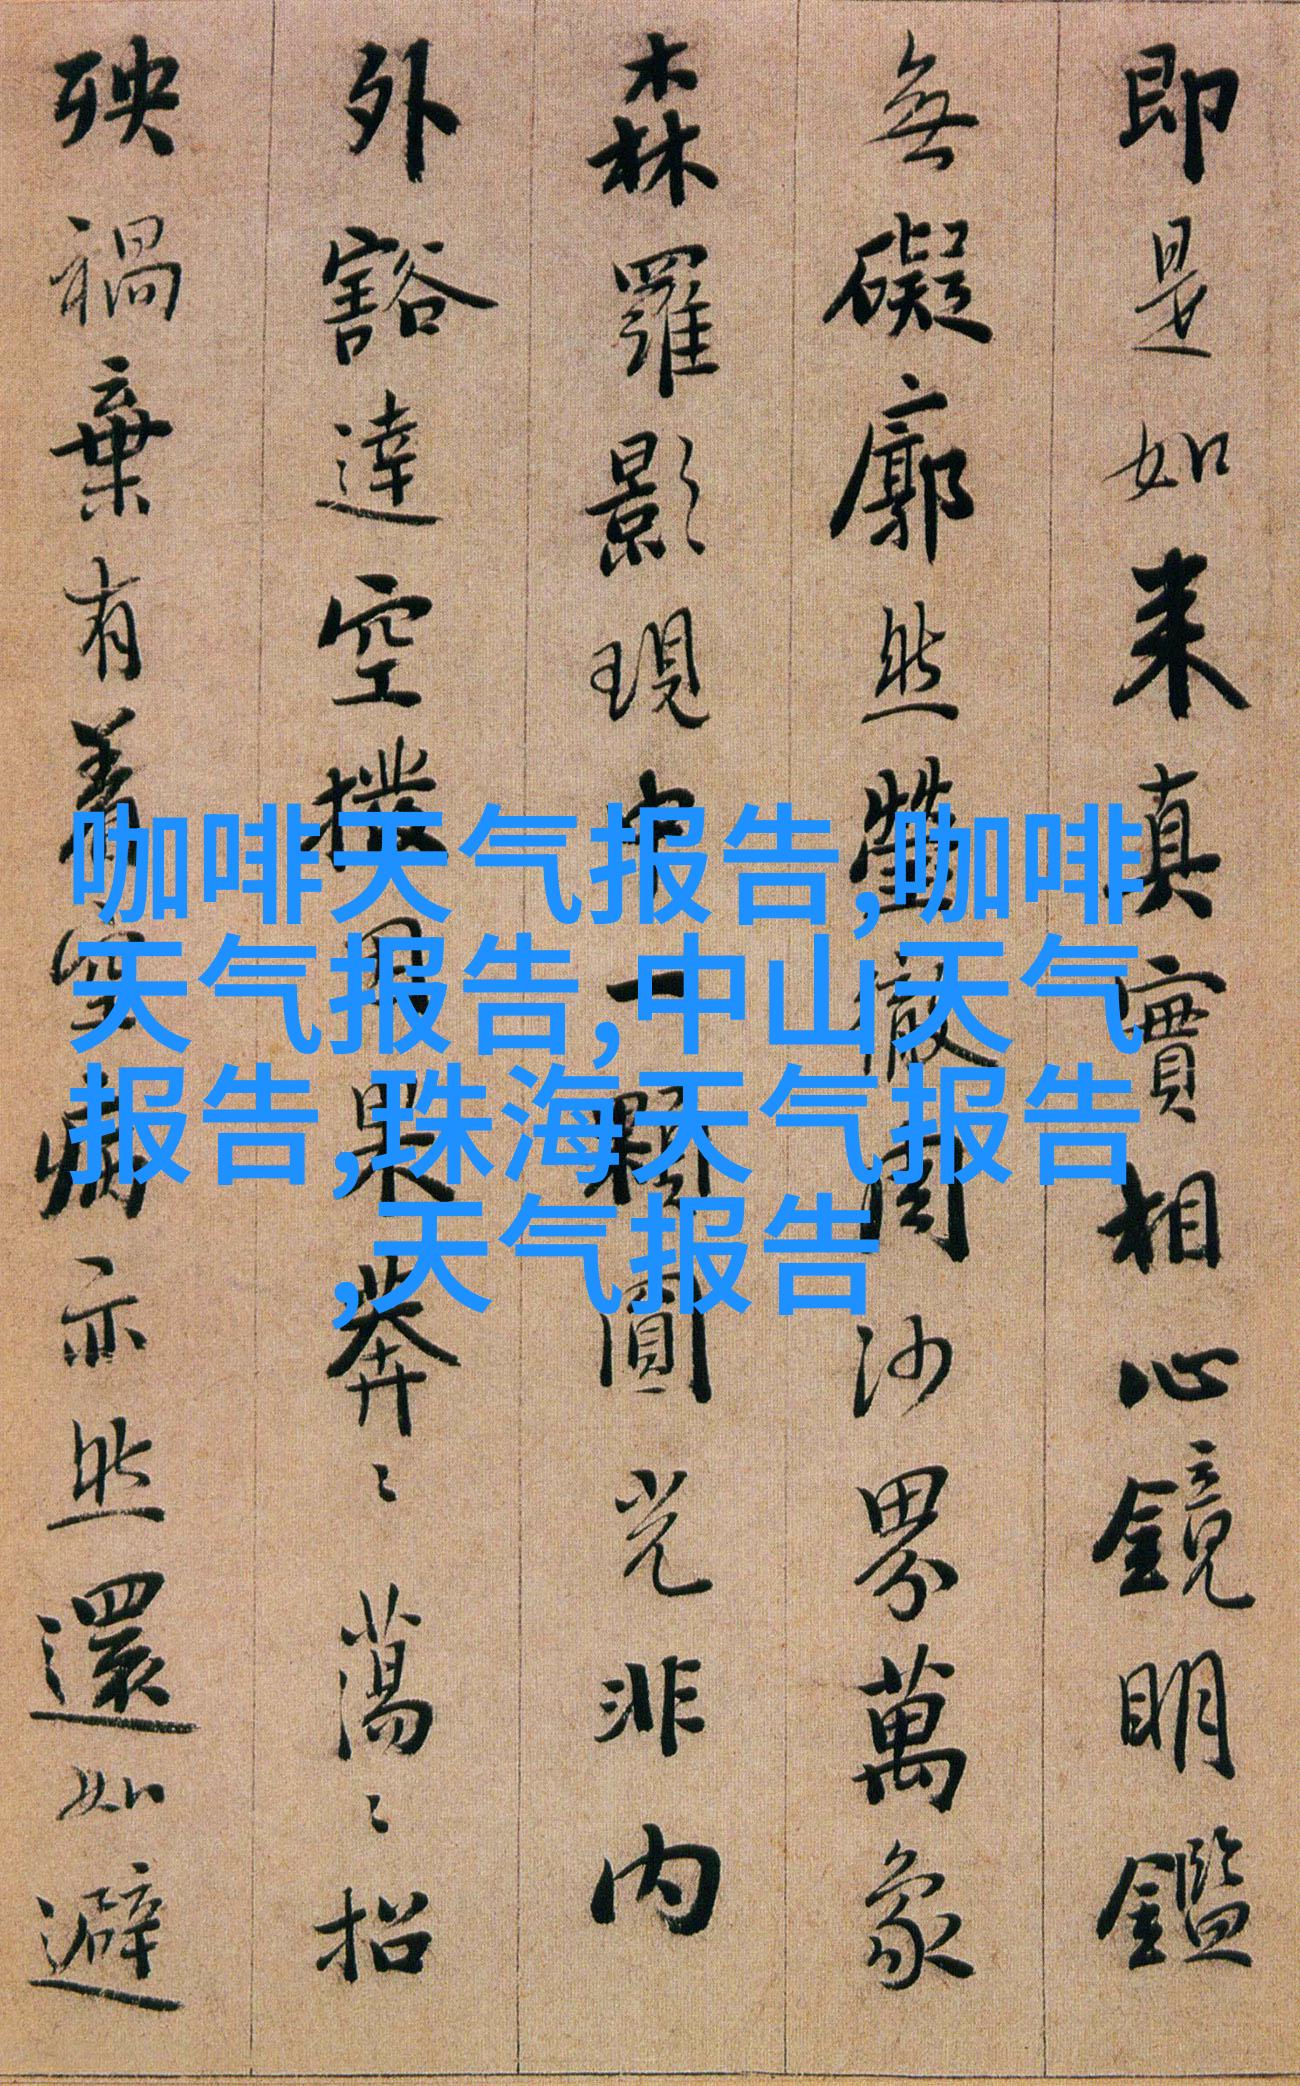 即是如来真實相心鏡明鑑
無礙廓然瑩徹周沙界萬象
森羅影現中一顆圓光非内
外豁達空撥因果莽〻蕩〻招
殃禍棄有著空病亦然還如避
咖啡天气报告,咖啡
天气报告,中山天气
报告,珠海天气报告
,天气报告